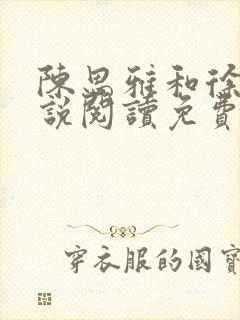 陳思雅和徐
說閱讀免費
穿衣服的國寶